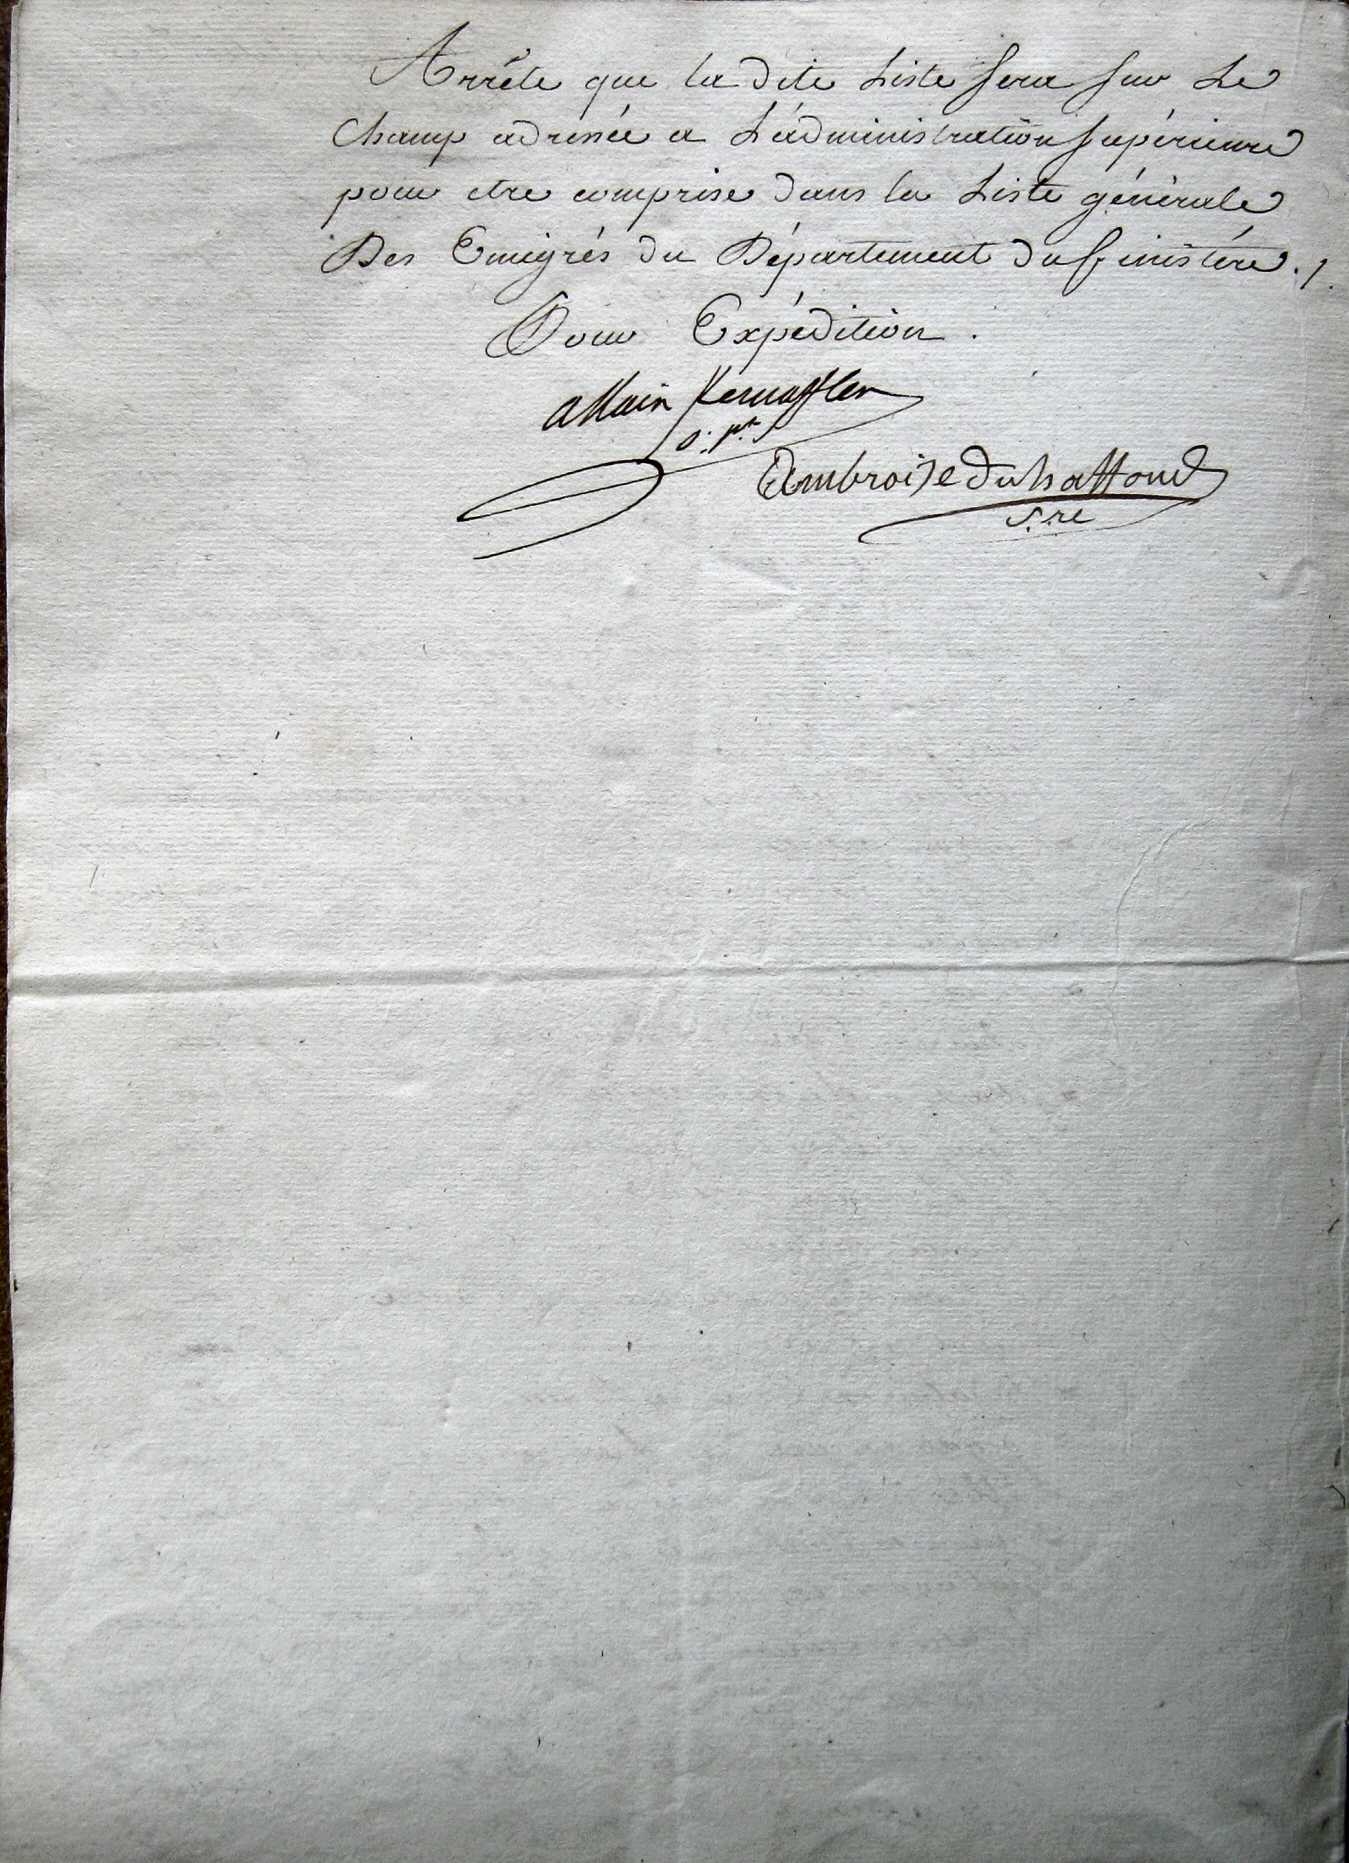 Arrête que la dite Liste sera sur Le
Champ adressée a L'administration supérieure
pour etre comprise dans la Liste générale
Des Emigrés du Département du finistère ./.
Pour Expédition .
allain Kernafflen
p. pnt
Ambroise Duhaffond
S.re